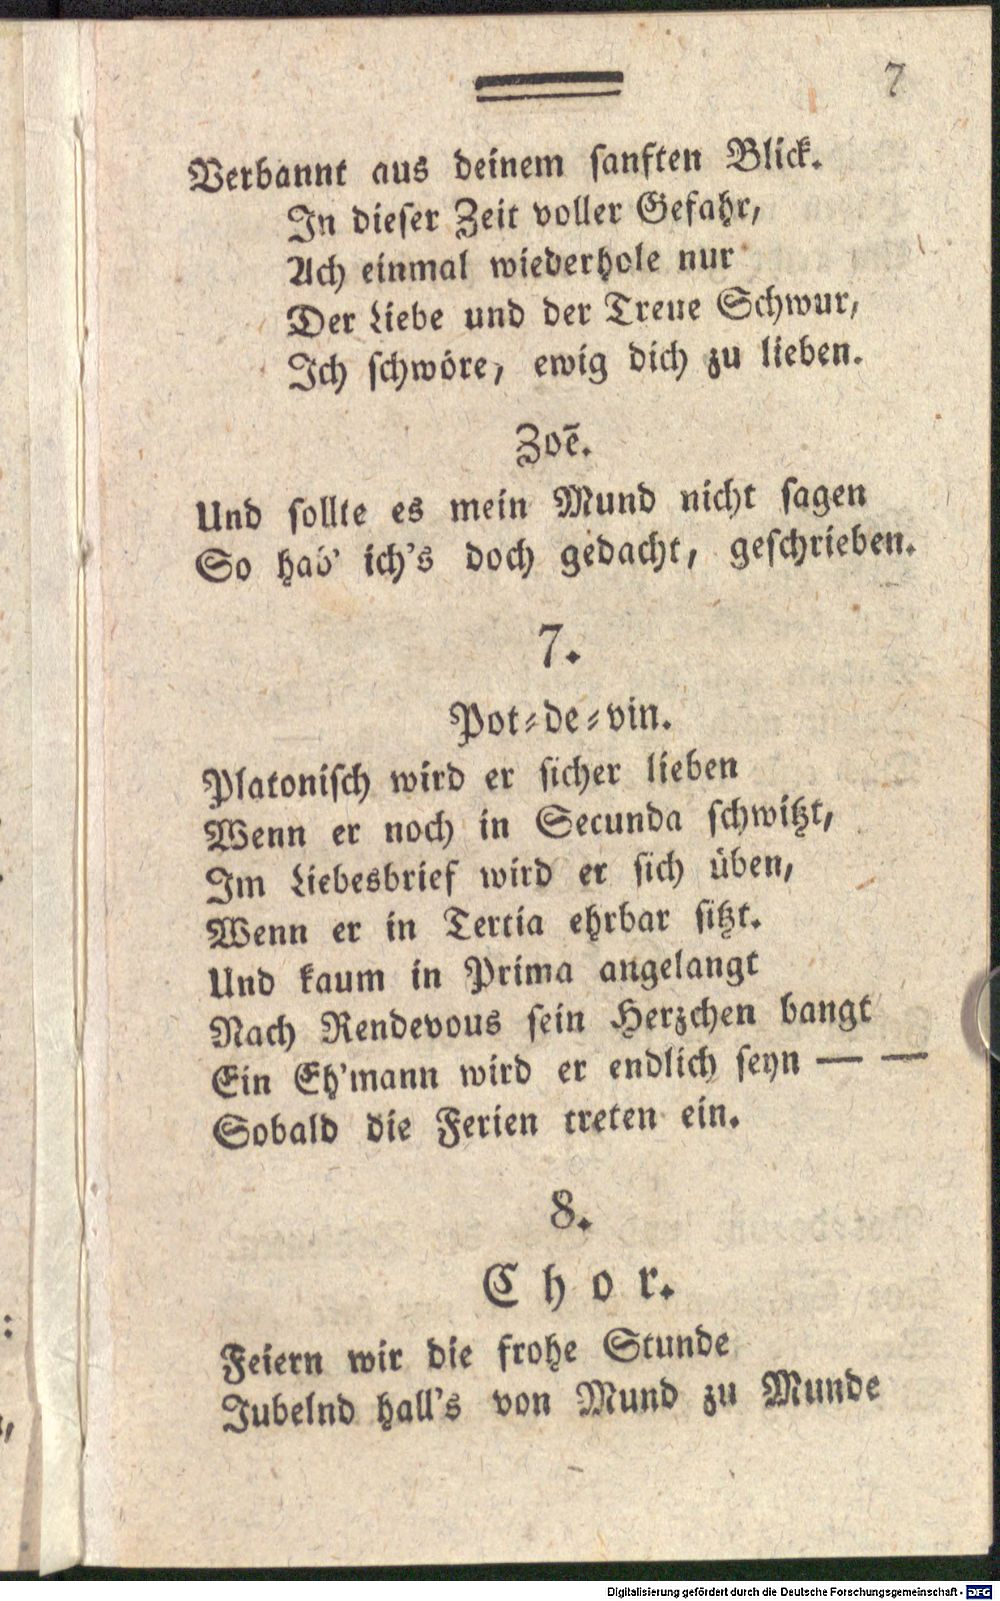 7
Verbannt aus deinem sanften Blick.
In dieser Zeit voller Gefahr,
Ach einmal wiederhole nur
Der Liebe und der Treue Schwur,
Ich schwöre, ewig dich zu lieben.
Zoē.
Und sollte es mein Mund nicht sagen
So hab' ich's doch gedacht, geschrieben.
7.
Pot-de-vin.
Platonisch wird er sicher lieben
Wenn er noch in Secunda schwitzt,
Im Liebesbrief wird er sich üben,
Wenn er in Tertia ehrbar sitzt.
Und kaum in Prima angelangt
Nach Rendevous sein Herzchen bangt
Ein Eh'mann wird er endlich seyn — —
Sobald die Ferien treten ein.
8.
Chor.
Feiern wir die frohe Stunde
Jubelnd hall's von Mund zu Munde
Digitalisierung gefördert durch die Deutsche Forschungsgemeinschaft - DFG